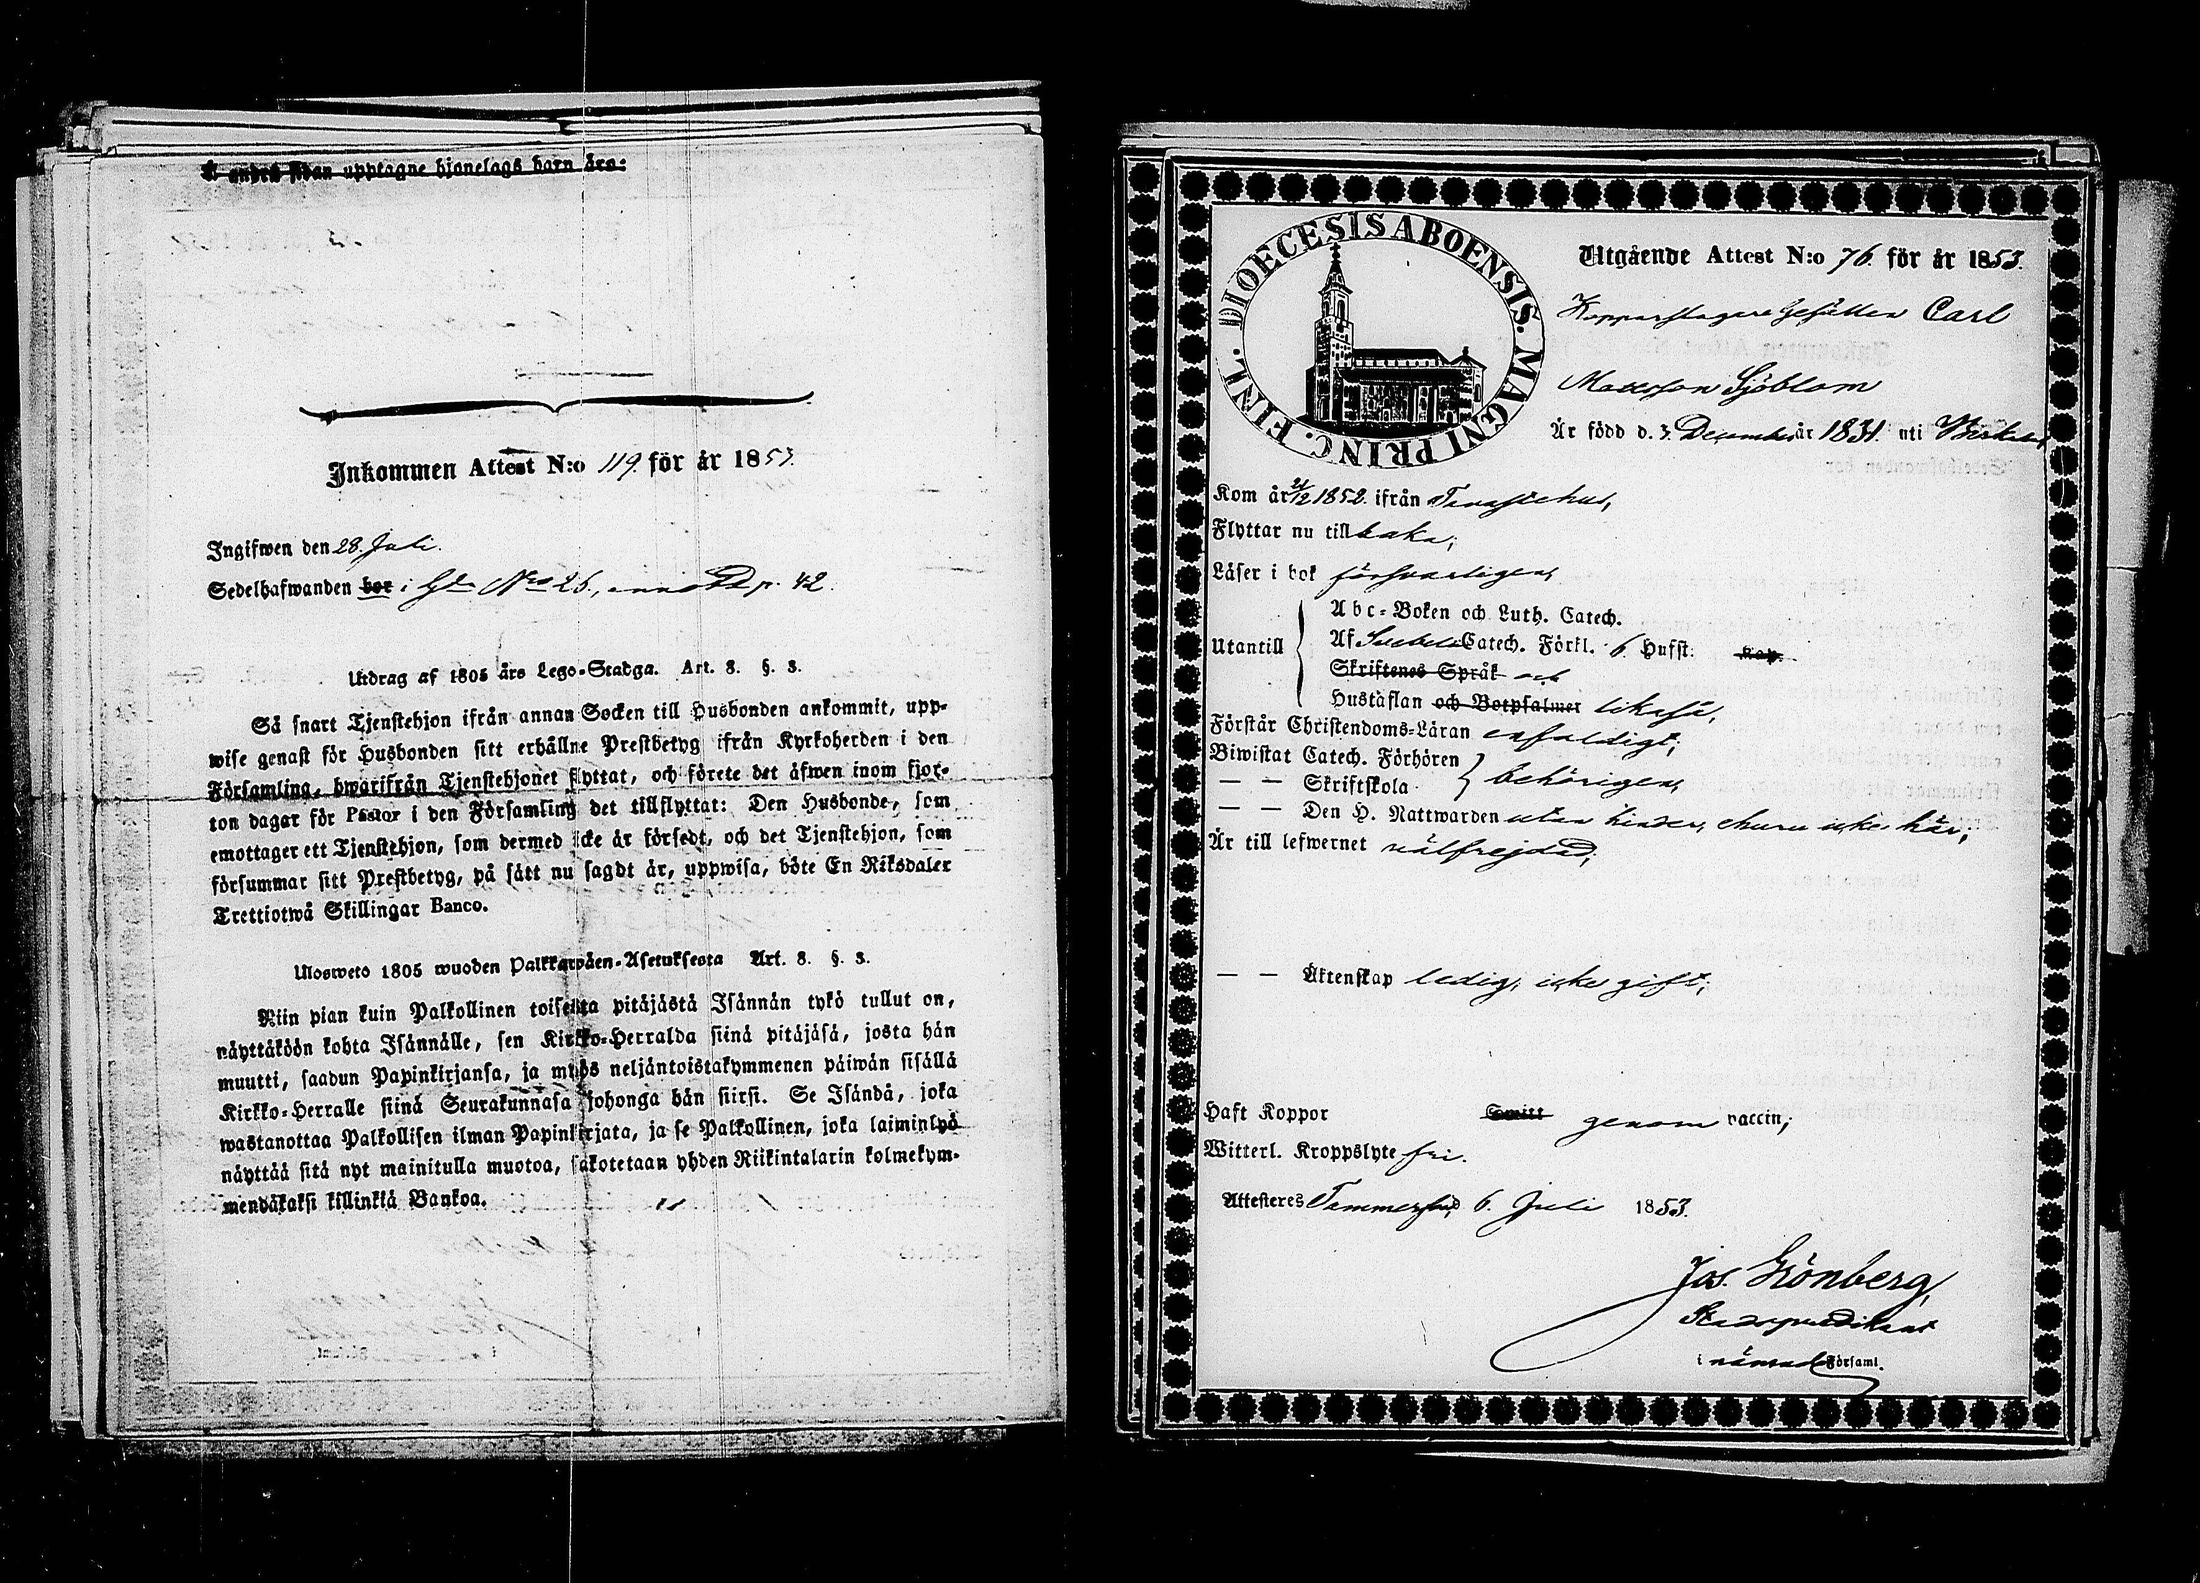 å andra sidan upptagne hjonelags barn äro:
Inkommen Attest N:o 119. för år 1853.
Ingifwen den 28. Juli.
Sedelhafwanden bor i Gdn Nro 26., p. 42.
Utdrag af 1805 års Lego-Stadga. Art. 8. §. 3.
Så snart Tjenstehjon ifrån annan Socken till Husbonden ankommit, upp-
wise genast för Husbonden sitt erhållne Prestbetyg ifrån Kyrkoherden i den
Församling, hwarifrån Tjenstehjonet flyttat, och förete det äfwen inom fjor-
ton dagar för Pastor i den Församling det tillflyttat: Den Husbonde, som
emottager ett Tjenstehjon, som dermed icke är försedt, och det Tjenstehjon, som
försummar sitt Prestbetyg, på sätt nu sagdt är, uppwisa, böte En Riksdaler
Trettiotwå Skillingar Banco.
Ulosweto 1805 wuoden Palkkawäen-Asetuksesta Art. 8. §. 3.
Niin pian kuin Palkollinen toisesta pitäjästä Isännän tykö tullut on,
näyttäköön kohta Isännälle, sen Kirkko-Herralda siinä pitäjäsä, josta hän
muutti, saadun Papinkirjansa, ja myös neljäntoistakymmenen päiwän sisällä
Kirkko-Herralle siinä Seurakunnasa johonga hän siirsi. Se Isändä, joka
wastanottaa Palkollisen ilman Papinkirjata, ja se Palkollinen, joka laiminlyö
näyttää sitä nyt mainitulla muotoa, sakotetaan yhden Riikintalarin kolmekym-
mendäkaksi killinkiä Bankoa.
DIOECESIS ABOENSIS. MAGNI PRINC. FINL.
Utgående Attest N:o 76. för år 1853.
Kopparslagare Gesällen Carl
Mattsson Sjöblom
Är född d. 3. December år 1831. uti Birkala,
Kom år 21/12 1852. ifrån Tavastehus,
Flyttar nu till baka;
Läser i bok försvarligen,
Utantill
Abc-Boken och Luth. Catech.
Af Svebelii Catech. Förkl. 6 Hufst: Kap.
Skriftenes Språk och
Hustaflan och Botpsalmer likaså,
Förstår Christendoms-Läran enfaldigt;
Biwistat Catech. Förhören
— — Skriftskola behörigen,
— — Den H. Nattwarden utan hinder, ehuru icke här;
Är till lefwernet välfrejdad;
— — Äktenskap ledig, icke gift;
Haft Koppor Smitt genom vaccin;
Witterl. Kroppslyte fri.
Attesteres Tammerfors, 6. Juli 1853.
Jos. Grönberg,
Stadspredikant
i nämnde Församl.